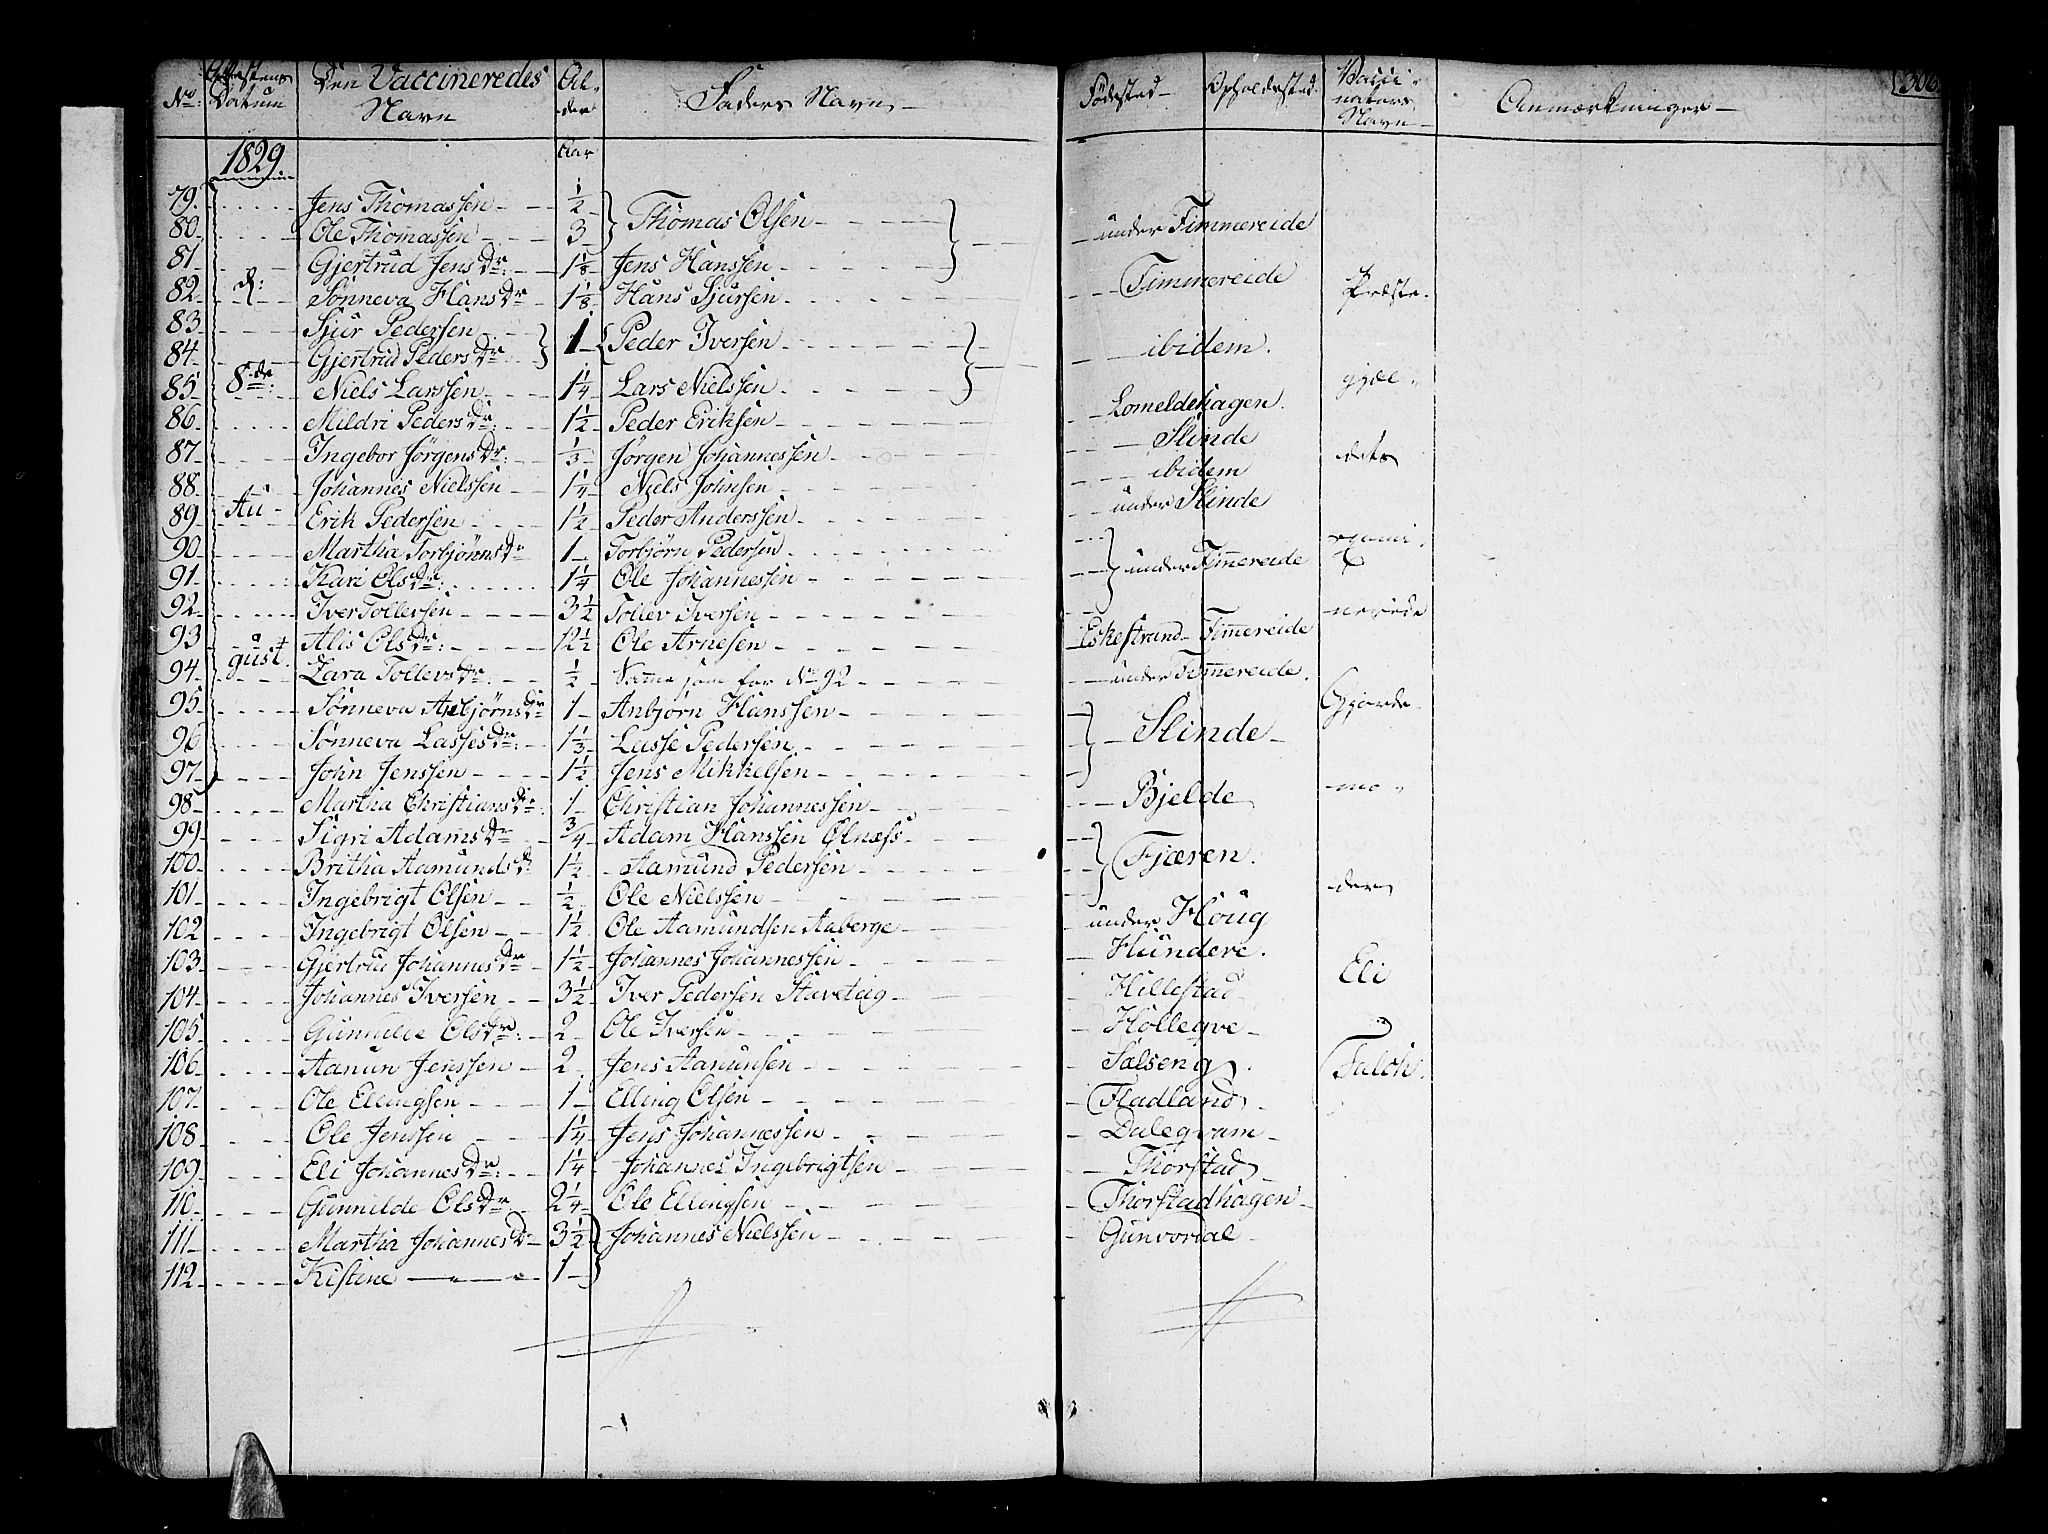 No: Attestens Datum Den Vaccineredes Navn Al- der Faders Navn Fødested Opholdssted Vacci- nators Navn Anmærkninger 306
1829 Aar
79. Jens Thomassen ½ Thomas Olsen under Timmereide
80. Ole Thomassen 3
81. Gjertrud Jens Dr: 1⅛ Jens Hanssen
82. d: Sønneva Hans Dr 1⅛ Hans Sjursen Timmereide Præste-
83. Sjur Pedersen 1 Peder Iversen ibidem.
84. Gjertrud Peders Dr
85. 8de: Niels Larssen 1¼ Lars Nielssen Lomeldehagen. gjæl-
86. Mildri Peders Dr: 1½ Peder Eriksen Slinde
87. Ingebor Jørgens Dr: ⅓ Jørgen Johannessen ibidem dets
88. Johannes Nielssen 1¼ Niels Johnsen under Slinde
89. Au- Erik Pedersen 1½ Peder Anderssen
90. Martha Torbjørns Dr 1 Torbjørn Pedersen under Timmereide
91. Kari Ols Dr: 1¼ Ole Johannessen
92. Iver Tollevsen 3½ Tollev Iversen
93. gust. Alis Ols Dr: 12½ Ole Arnesen Eskestrand Timmereide
94. Zara Tollevs Dr: ½ Samme som for No 92 under Timmereide.
95. Sønneva Anbjørns Dr 1 Anbjørn Hanssen Slinde Gjorde-
96. Sønneva Lasses Dr: 1⅓ Lasse Pedersen
97. John Jenssen 1½ Jens Mikkelsen
98. Martha Christians Dr: 1 Christian Johannessen Bjelde mo-
99. Sigri Adams Dr ¾ Adam Hanssen Ølnæss Fjæren.
100. Britha Aamunds Dr 1½ Aamund Pedersen
101. Ingebrigt Olsen ½ Ole Nielssen der
102 Ingebrigt Olsen 1½ Ole Aamundsen Aaberge under Houg
103. Gjertrud Johannes Dr 1½ Johannes Johannessen Hundere.
104. Johannes Iversen 3½ Iver Pedersen Staveteig Hillestad Eli
105. Gunnilde Ols Dr: 2 Ole Iversen Hollegve
106. Aamun Jenssen 2 Jens Aamunsen Sølseng. Falck.
107. Ole Ellingsen 1 Elling Olsen Fladland
108. Ole Jenssen 1¼ Jens Johannessen Dalegvam
109. Eli Johannes Dr: 1¼ Johannes Ingebrigtsen Thorstad
110. Gunnilde Ols Dr 2¼ Ole Ellingsen Thorstadhagen
111. Martha Johannes Dr 3½ Johannes Nielssen Gunvordal
112. Kistine — " — " 1